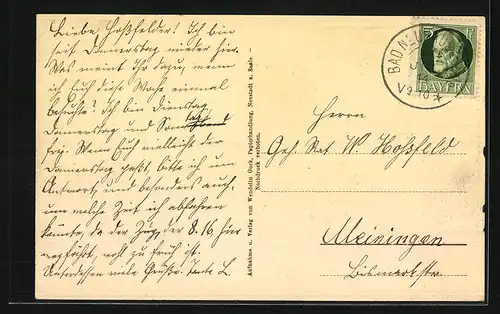 Liebe Hoßfelder! Ich bin
seit Donnerstag wieder hier.
Was meint Ihr dazu, wenn
ich Euch diese Woche einmal
besuchte? Ich bin Dienstag,
Donnerstag und Samstag
frei. Wenn Euch vielleicht der
Donnerstag paßt, bitte ich um
Antwort, und besonders auch,
um welche Zeit ich abfahren
könnte, da der Zug, der 8.16 hier
wegfährt, wohl zu früh ist.
Unterdessen viele Grüße. Tante L.
Aufnahme u. Verlag von Wendelin Guck, Papierhandlung, Neustadt a. Saale. -
Nachdruck verboten.
BAD NEU
V9-10 *
5 5
BAYERN
Herrn
Geh. Rat W. Hoßfeld
Meiningen
Bismarckstr.